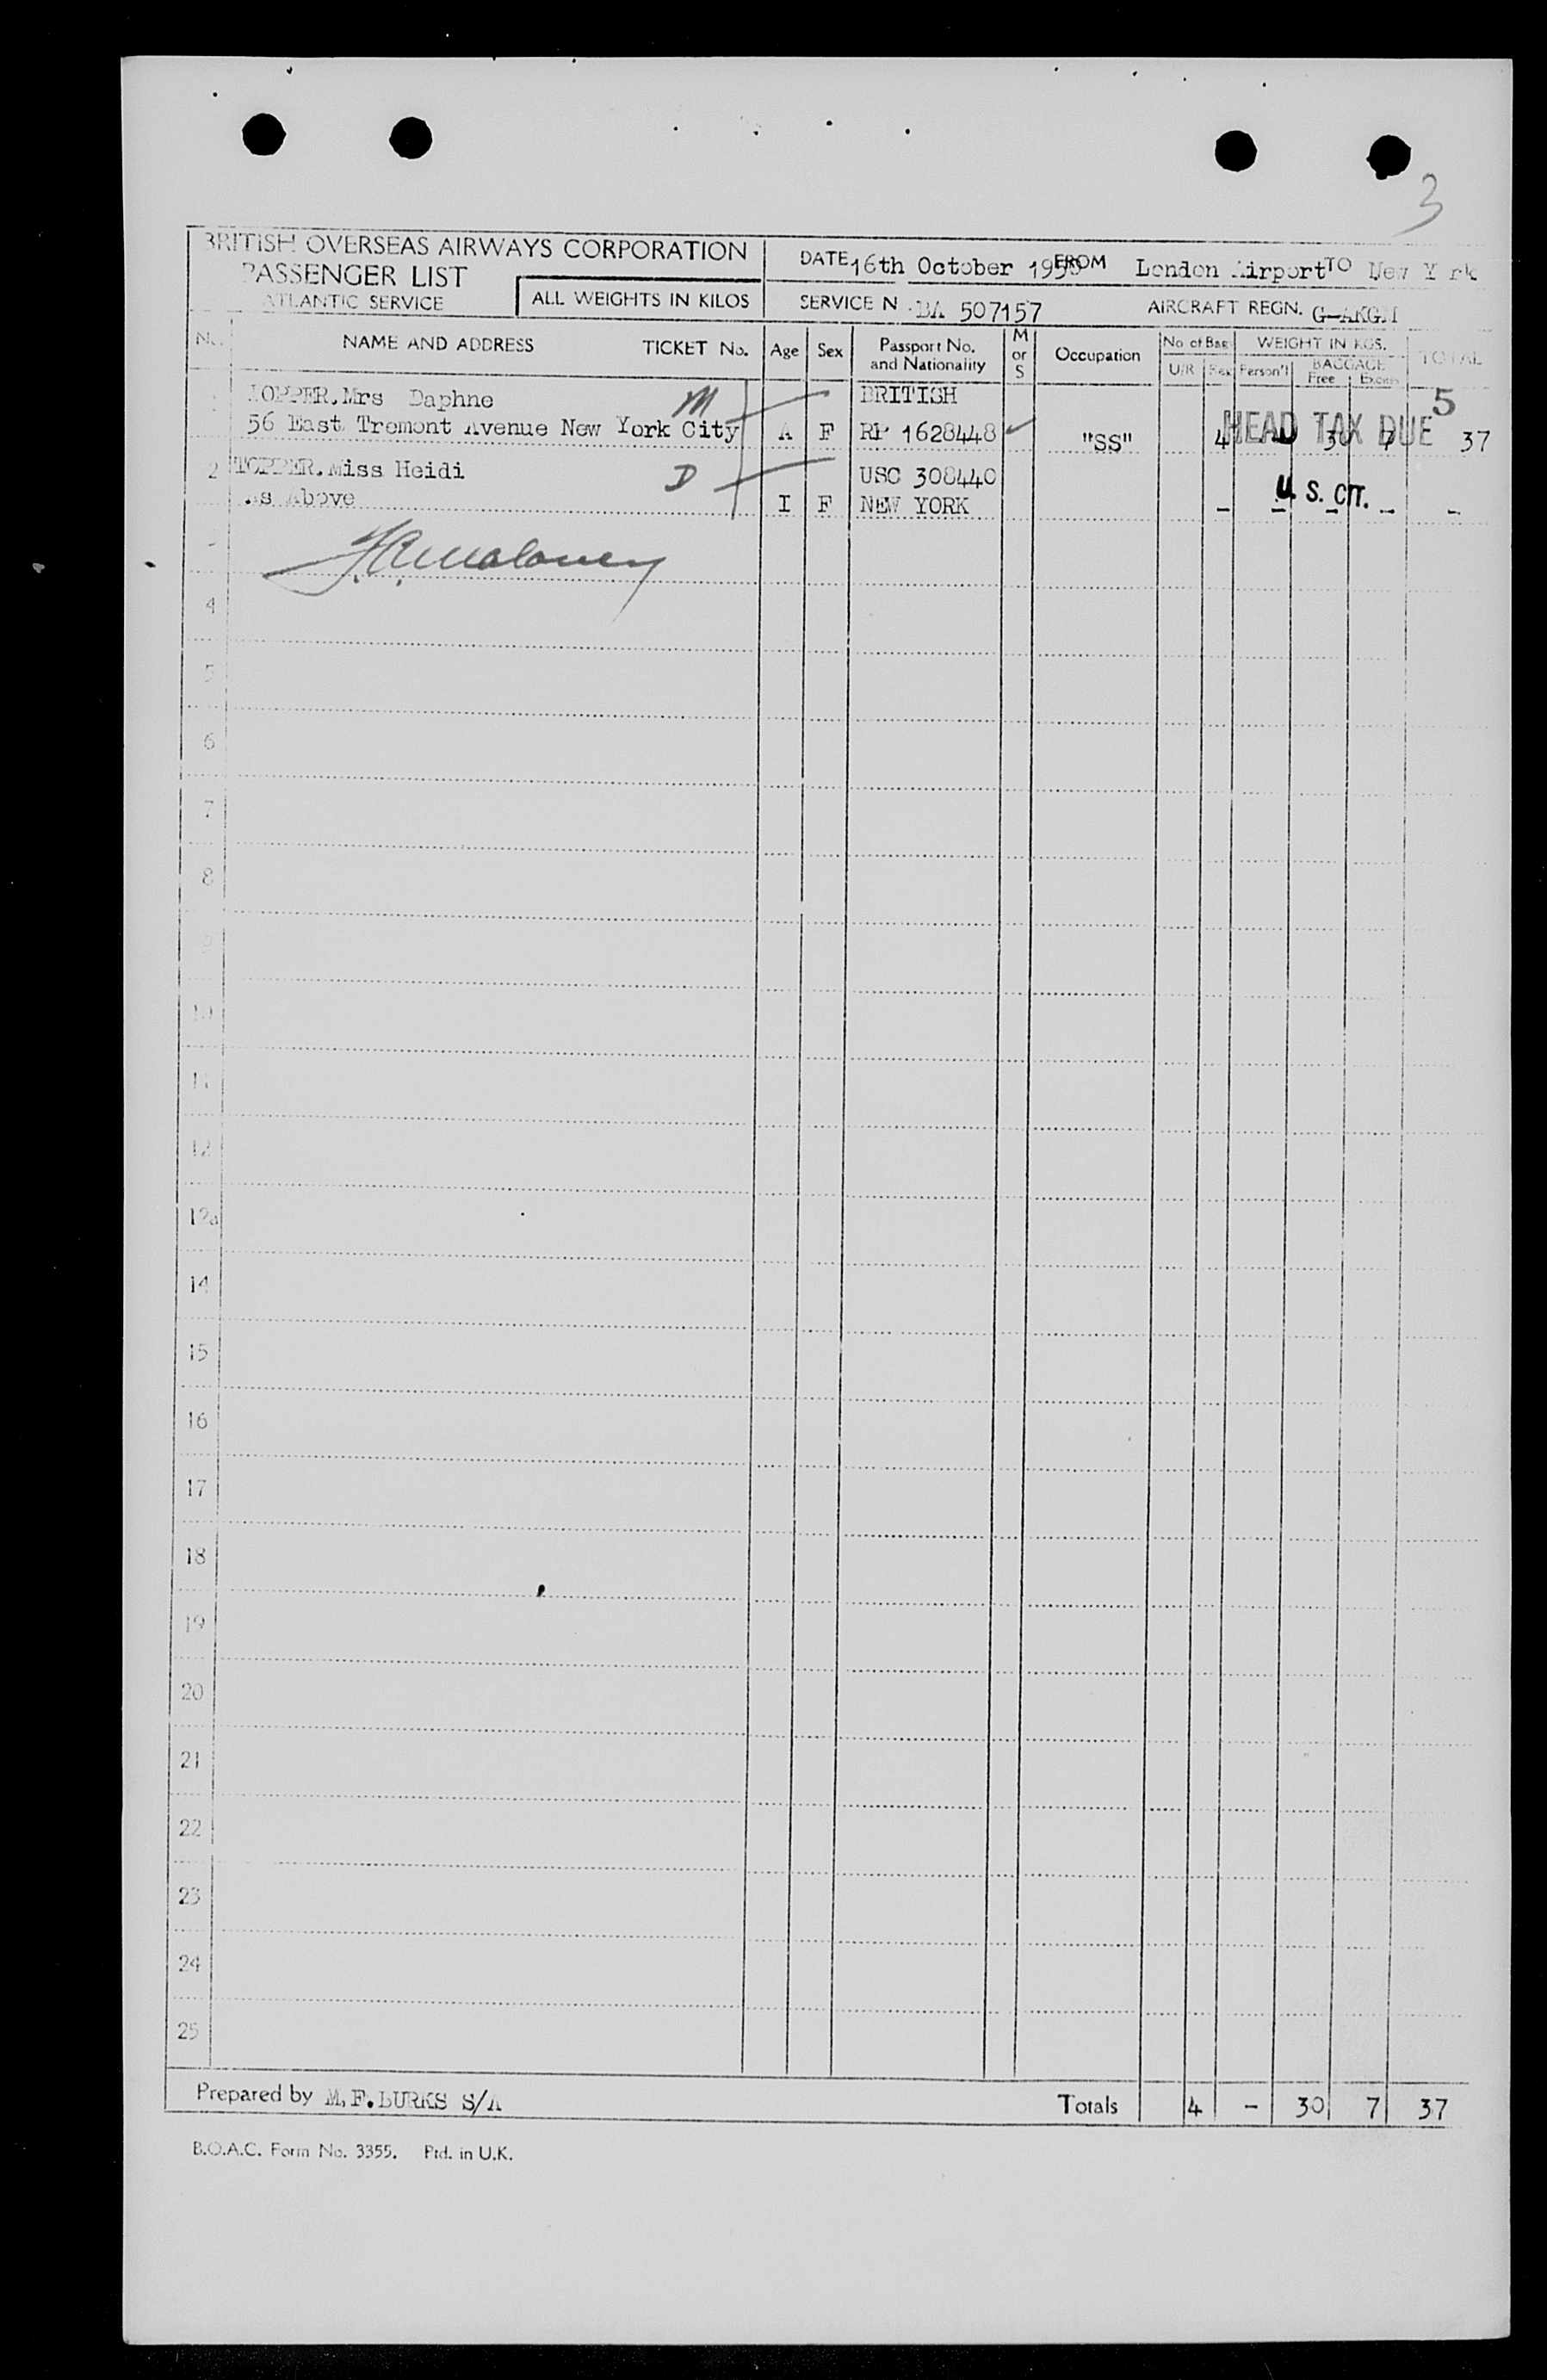 3
BRITISH OVERSEAS AIRWAYS CORPORATION
PASSENGER LIST
ATLANTIC SERVICE
ALL WEIGHTS IN KILOS
DATE 16th October 1950 FROM London Airport TO New Y rk
SERVICE N . BA 507157 AIRCRAFT REGN. G-AKGM
No. NAME AND ADDRESS TICKET No. Age Sex Passport No. and Nationality M or S Occupation No of Bags U/R Rex WEIGHT IN KGS. Person'l BAGGAGE Free Excess TOTAL
TOPPER.Mrs Daphne M BRITISH 5
56 East Tremont Avenue New York City A F RP 1628448 "SS" 4 HEAD TAX DUE - 30 7 37
2 TOPPER.Miss Heidi D USC 308440
As Above I F NEW YORK U. S. CIT. - - - - -
4
5
6
7
8
9
10
11
12
12a
14
15
16
17
18
19
20
21
22
23
24
25
Prepared by M.F.BURKS S/A Totals 4 - 30 7 37
B.O.A.C. Form No. 3355. Ptd. in U.K.